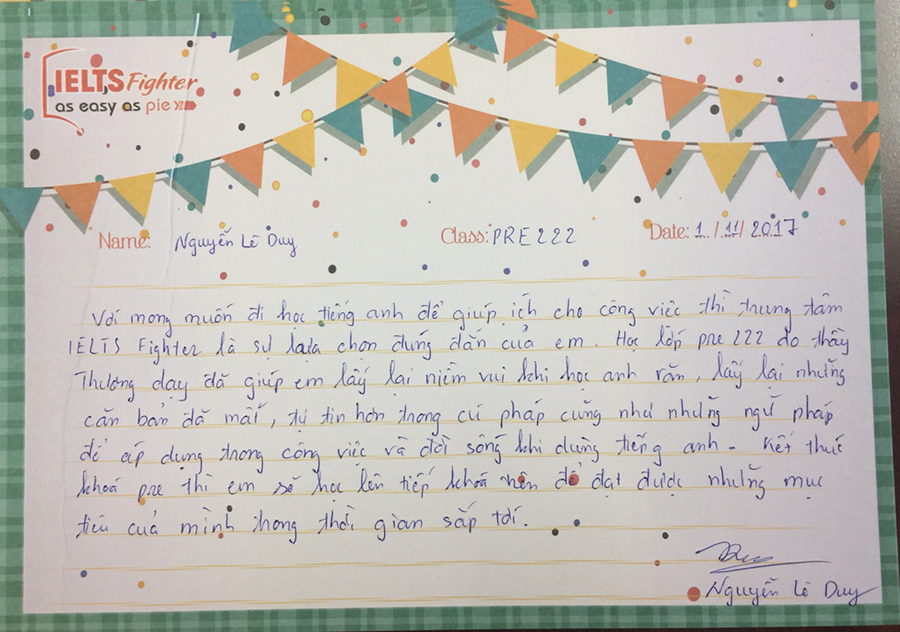 IELTS Fighter
as easy as pie
Name: Nguyễn Lê Duy Class: PRE222 Date: 1 / 11 / 2017
Với mong muốn đi học tiếng anh để giúp ích cho công việc thì trung tâm
IELTS Fighter là sự lựa chọn đúng đắn của em. Học lớp pre 222 do thầy
Thương dạy đã giúp em lấy lại niềm vui khi học anh văn, lấy lại những
căn bản đã mất, tự tin hơn trong cú pháp cũng như những ngữ pháp
để áp dụng trong công việc và đời sống khi dùng tiếng anh - Kết thúc
khoá pre thì em sẽ học lên tiếp khoá nên để đạt được những mục
tiêu của mình trong thời gian sắp tới.
Nguyễn Lê Duy